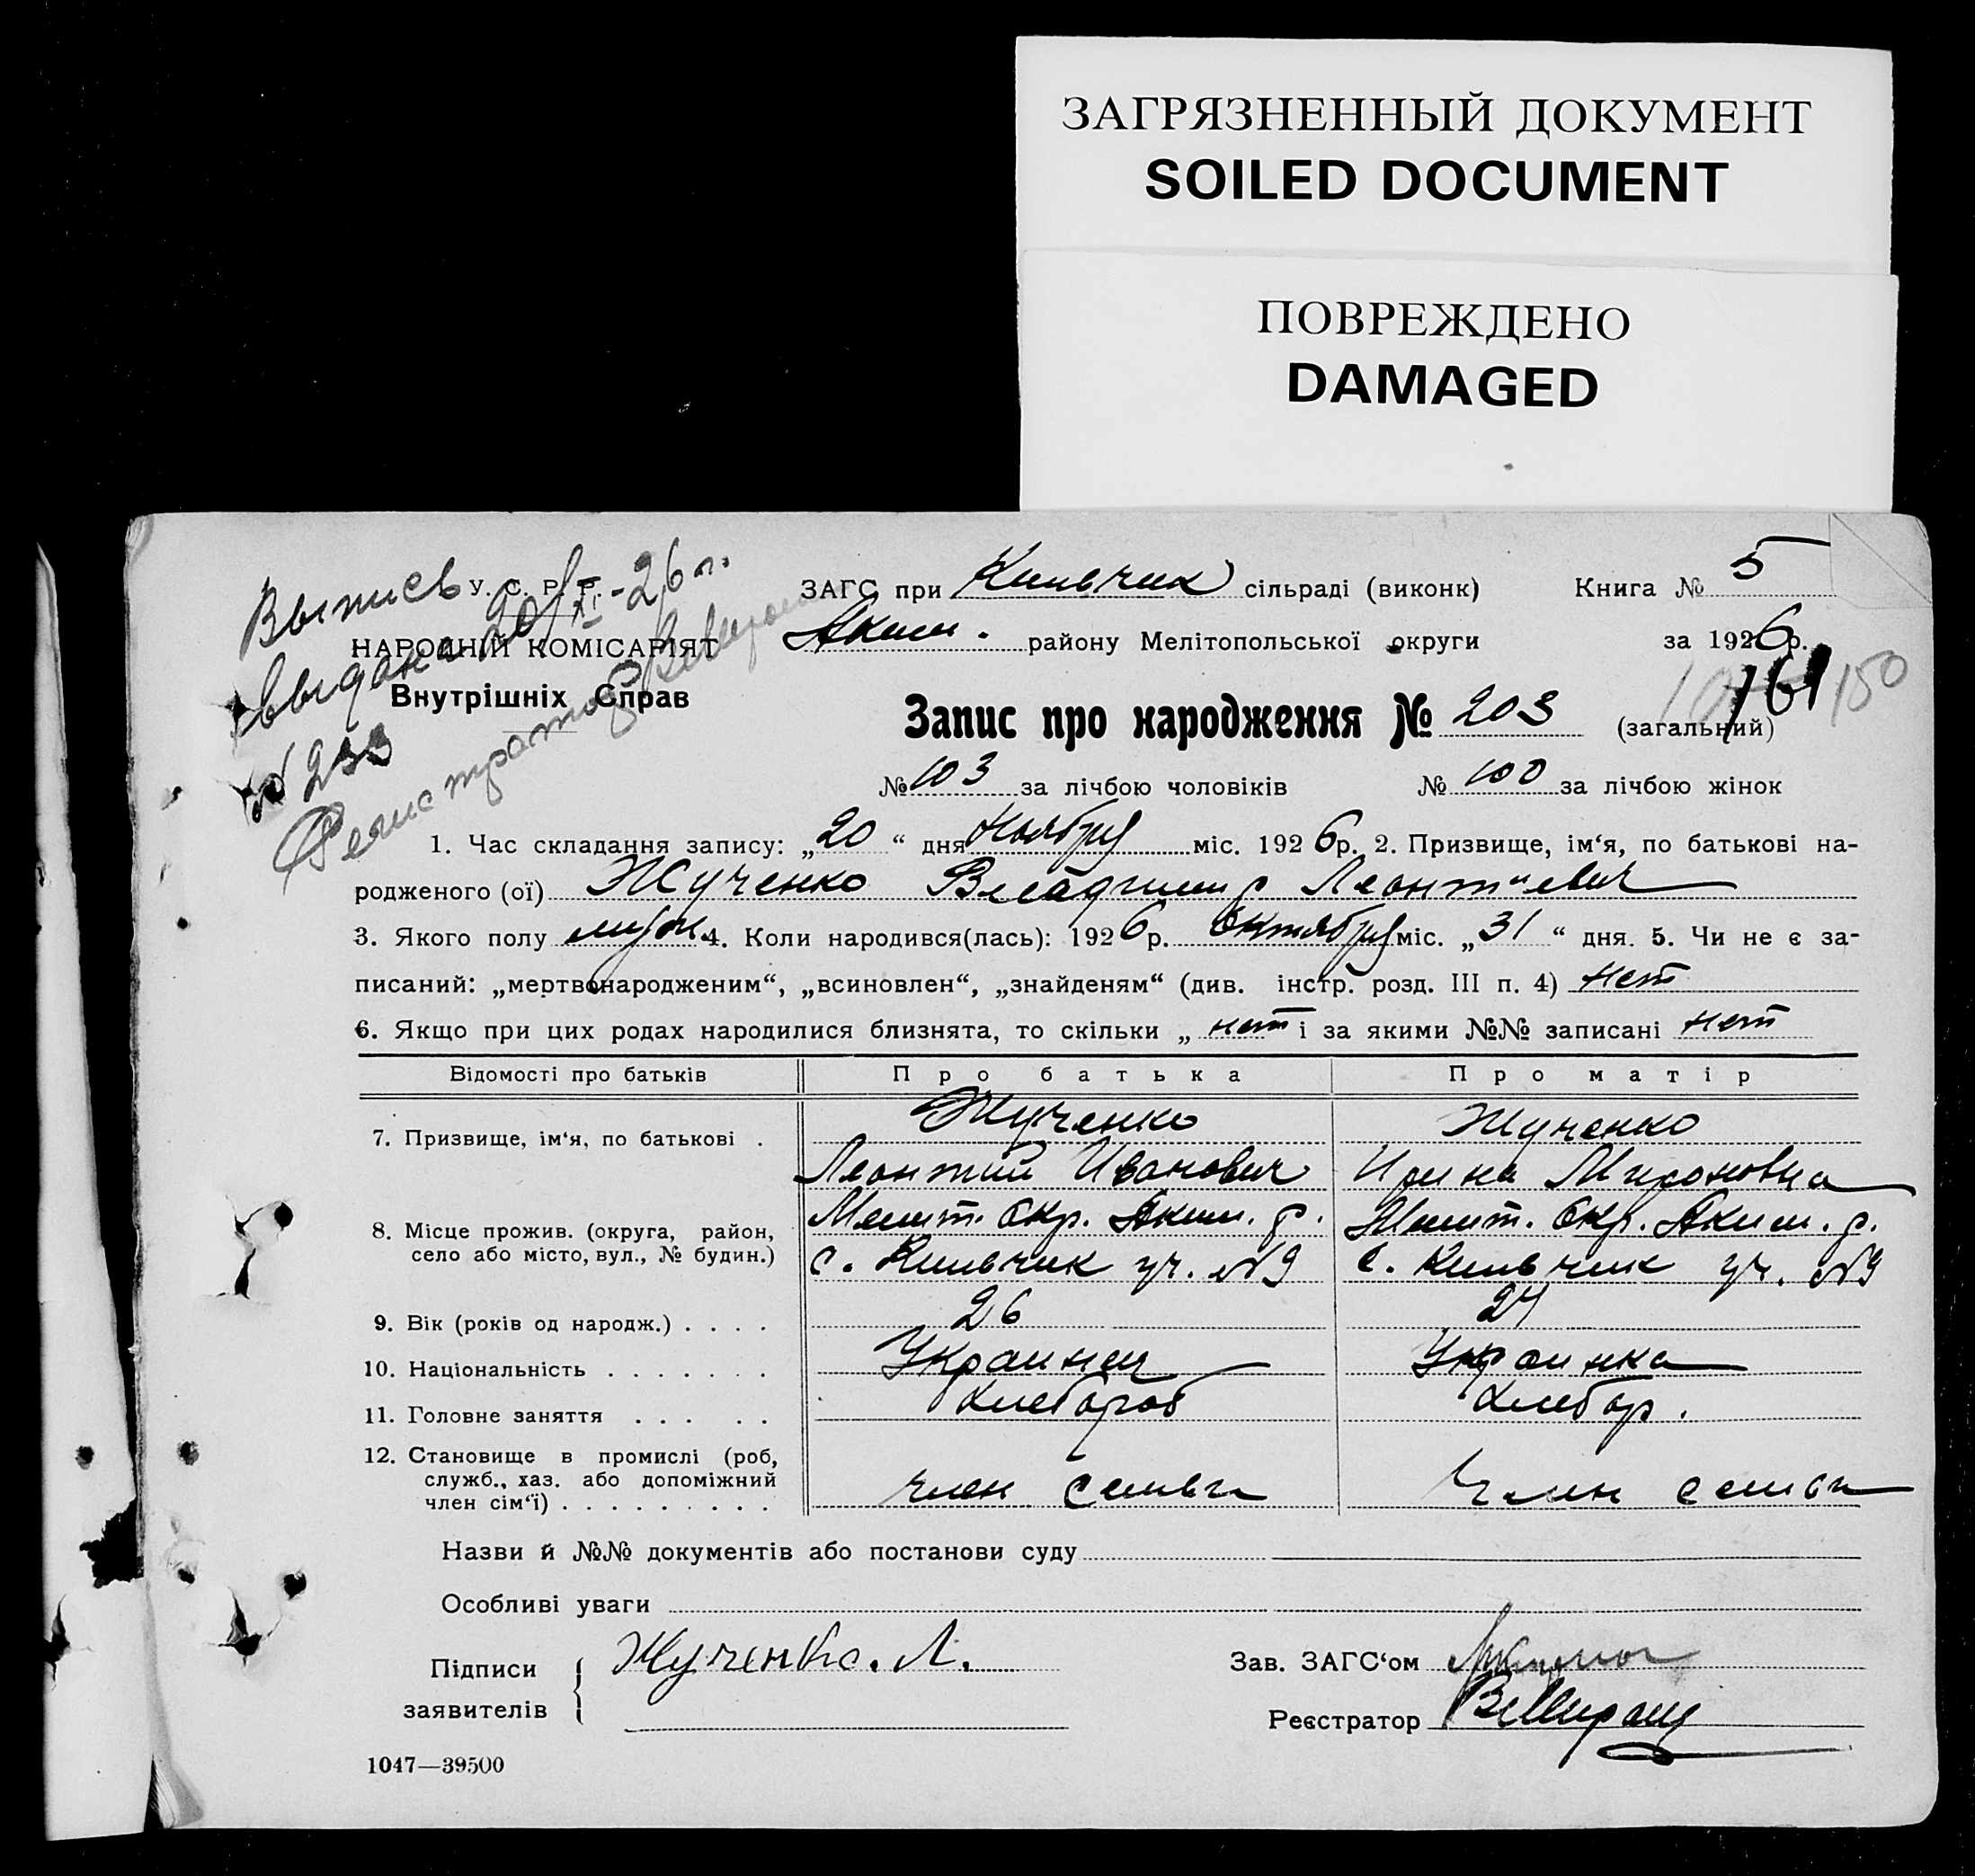 ЗАГРЯЗНЕННЫЙ ДОКУМЕНТ
SOILED DOCUMENT
ПОВРЕЖДЕНО
DAMAGED
Выпись
выдана 20/XI-26 г.
№ 233
Регистратор
У. С. Р. Р.
НАРОДНІЙ КОМІСАРІЯТ
Внутрішніх Справ
ЗАГС при Кильчик сільраді (виконк) Книга № 5
Аким. району Мелітопольської округи за 1926 р.
161 150
Запис про народження № 203 (загальний)
№ 103 за лічбою чоловіків № 100 за лічбою жінок
1. Час складання запису: „20“ дня Ноября міс. 1926 р. 2. Призвище, ім‘я, по батькові на-
родженого (ої) Жученко Владимир Леонтиевич
3. Якого полу муж. 4. Коли народився(лась): 1926 р. Октября міс. „31“ дня. 5. Чи не є за-
писаний: „мертвонародженим“, „всиновлен“, „знайденям“ (див. інстр. розд. III п. 4) нет
6. Якщо при цих родах народилися близнята, то скільки „ нет і за якими №№ записані нет
Відомості про батьків Про батька Про матір
7. Призвище, ім‘я, по батькові . Жученко Жученко
Леонтий Иванович Ирина Мироновна
8. Місце прожив. (округа, район, Мелит. Окр. Аким. р. Мелит. Окр. Аким. р.
село або місто, вул., № будин.) с. Кильчик уч. №9 с. Кильчик уч. №9
9. Вік (років од народж.) . . . . 26 24
10. Національність . . . . . . . Украинец Украинка
11. Головне заняття . . . . . Хлебороб Хлебор.
12. Становище в промислі (роб,
служб., хаз. або допоміжний
член сім‘ї) . . . . . . . . . . член семьи Член семьи
Назви й №№ документів або постанови суду
Особливі уваги
Підписи Жученко. Л. Зав. ЗАГС‘ом
заявителів Реєстратор
1047—39500